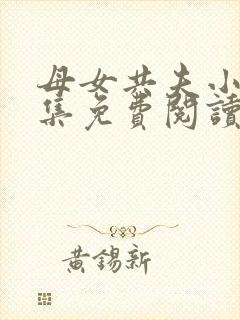 母女共夫小
集免費閱讀
黃錫新